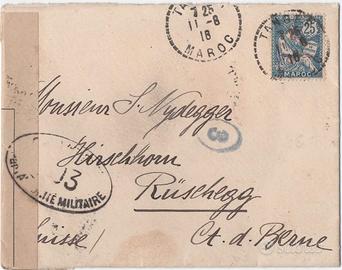 TA
7 25
11-8
16
MAROC
25
MAROC
3
Monsieur S. Nydegger
Hirschhorn
Rüschegg
Ct. d. Berne
Suisse!
13
MILITAIRE